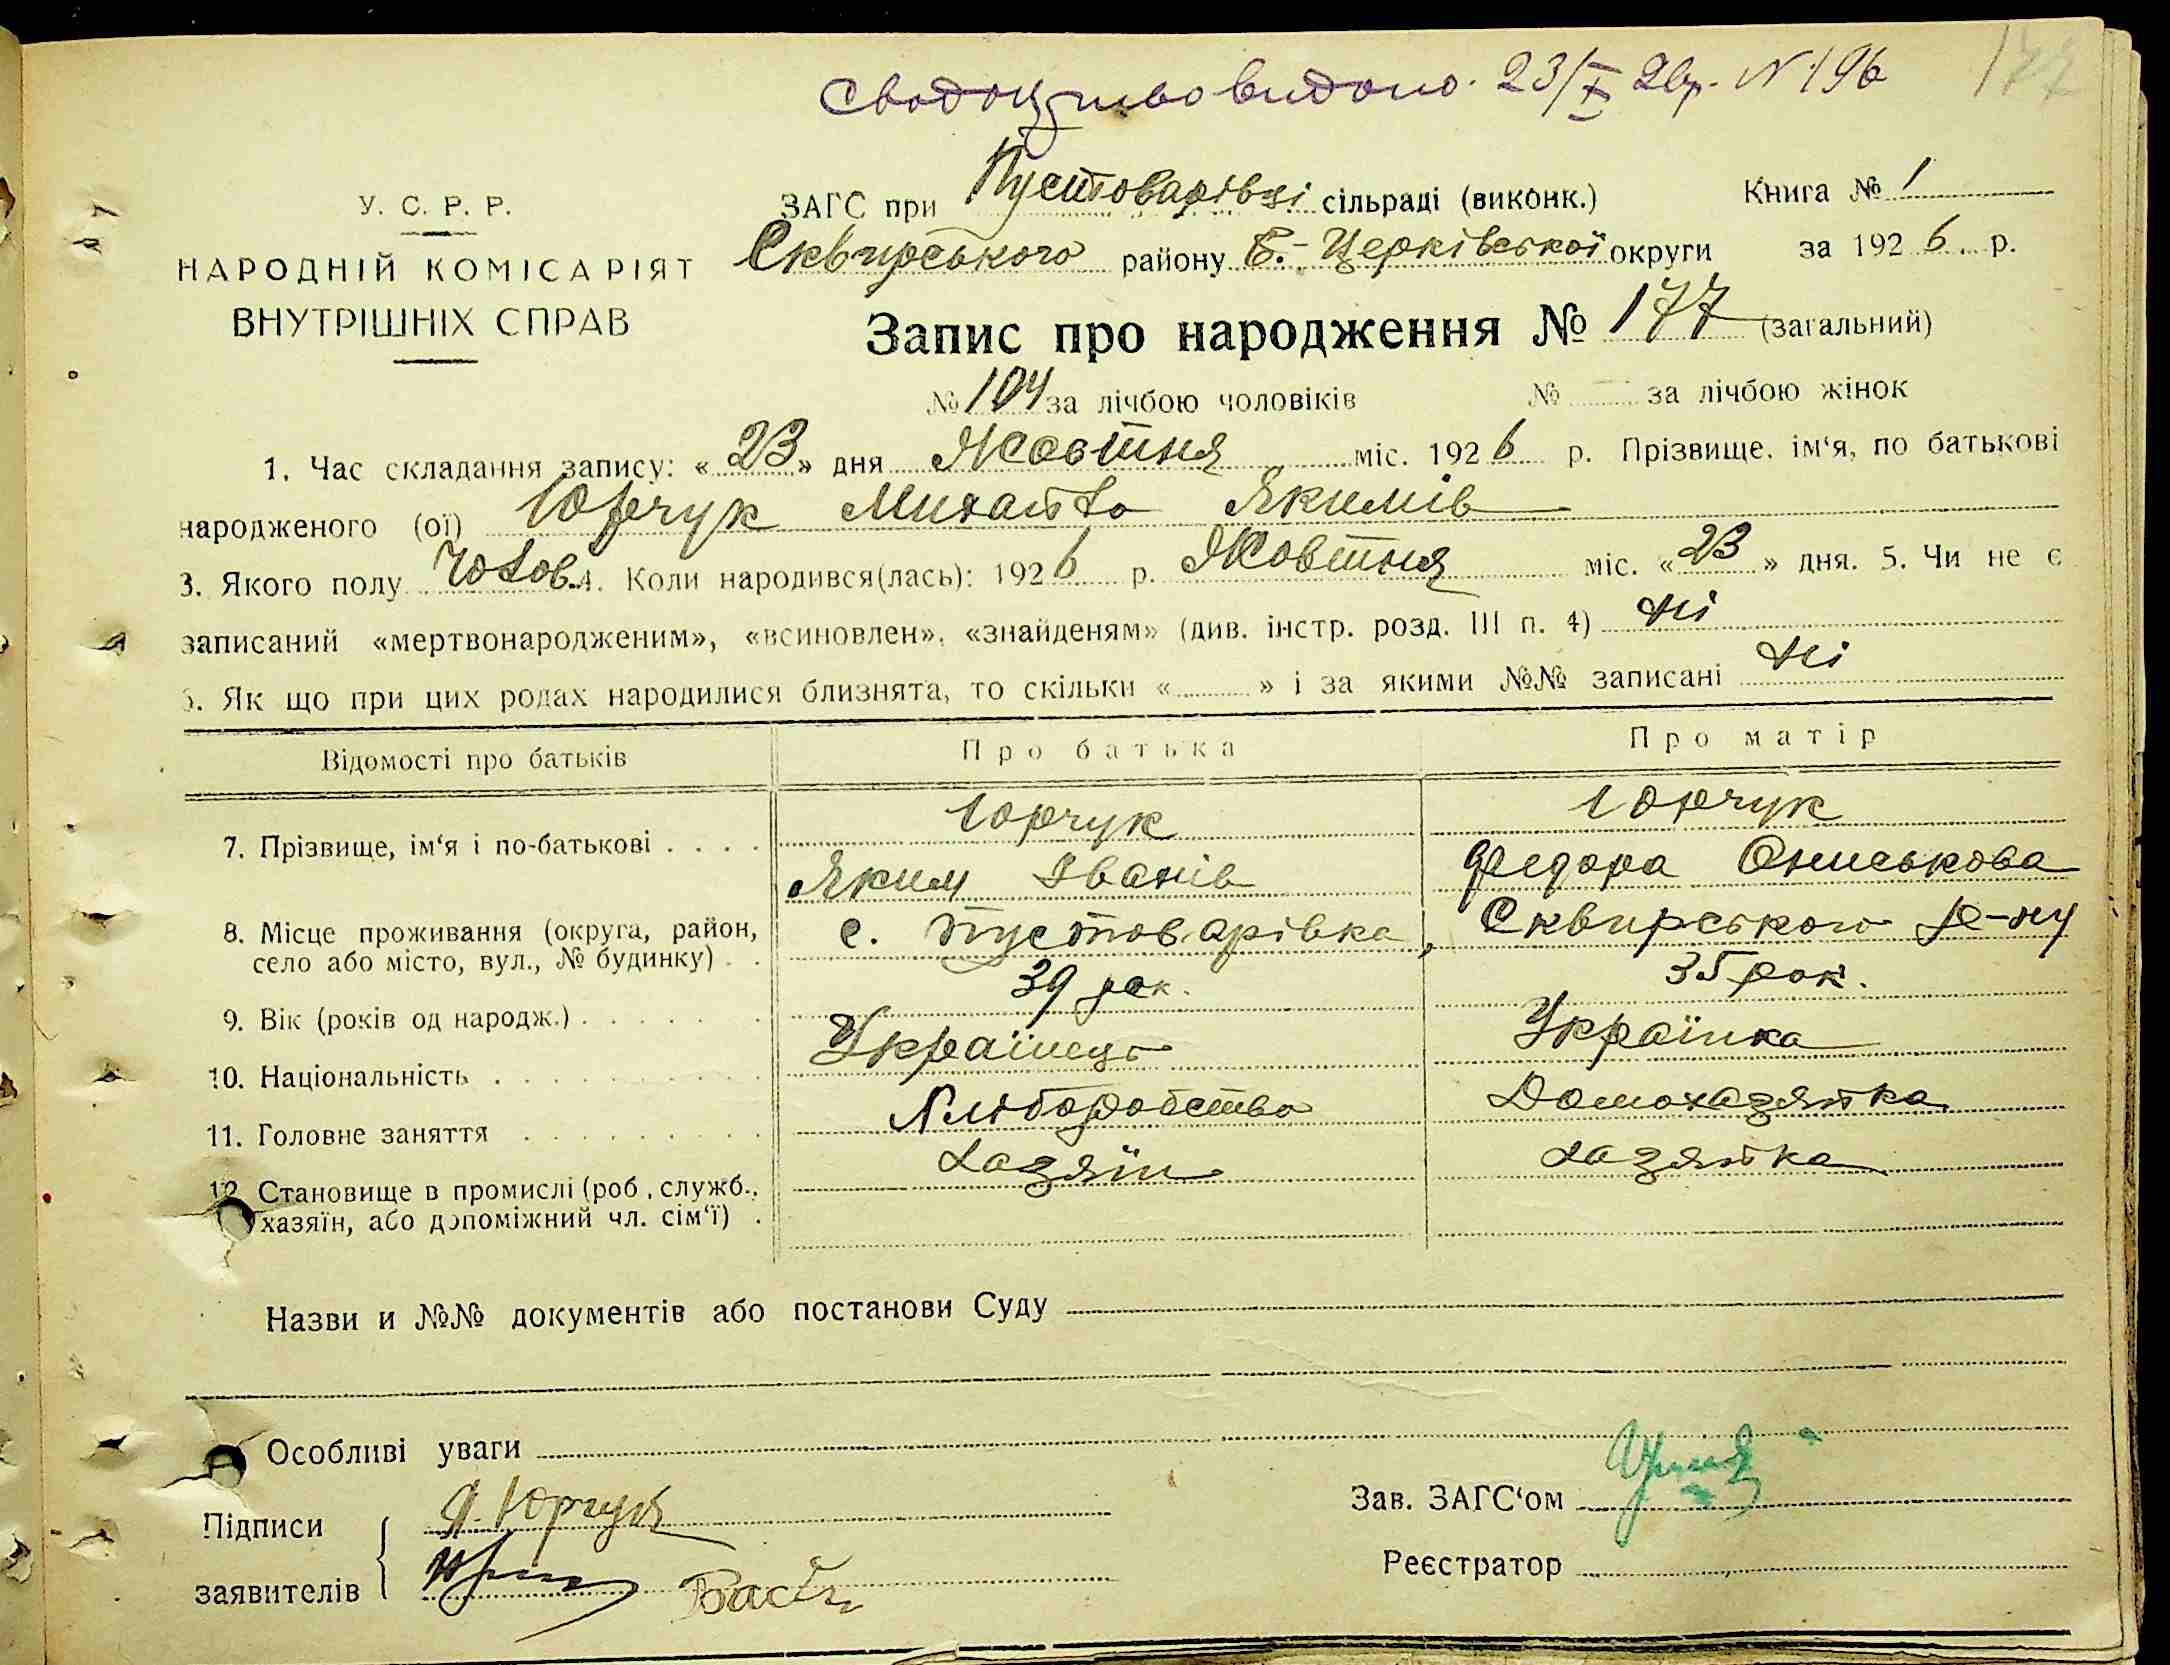 Свідоцтво видано. 23/X 26р. N 196
177
У. С. Р. Р.
НАРОДНІЙ КОМІСАРІЯТ
ВНУТРІШНІХ СПРАВ
ЗАГС при Пустоварівці сільраді (виконк.) Книга № 1
Сквирського району Б.-Церківської округи за 1926 р.
Запис про народження № 177 (загальний)
№ 104 за лічбою чоловіків № — за лічбою жінок
1. Час складання запису: «23» дня Жовтня міс. 1926 р. Прізвище, ім‘я, по батькові
народженого (ої) Юрчук Михайло Якимів
3. Якого полу Чолов. 4. Коли народився(лась): 1926 р. Жовтня міс. «23» дня. 5. Чи не є
записаний «мертвонародженим», «всиновлен», «знайденям» (див. інстр. розд. III п. 4) ні
6. Як що при цих родах народилися близнята, то скільки « » і за якими №№ записані ні
Відомості про батьків Про батька Про матір
7. Прізвище, ім‘я і по-батькові Юрчук Юрчук
Яким Іванів Федора Ониськова
8. Місце проживання (округа, район, село або місто, вул., № будинку) с. Пустоварівка, Сквирського р-ну
9. Вік (років од народж.) 39 рок. 35 рок.
10. Національність Українець Українка
11. Головне заняття Хліборобство Домохазяйка
12. Становище в промислі (роб., служб., хазяїн Хазяйка
хазяїн, або допоміжний чл. сім‘ї)
Назви и №№ документів або постанови Суду
Особливі уваги
Підписи Я. Юрчук
заявителів
Зав. ЗАГС‘ом
Реєстратор